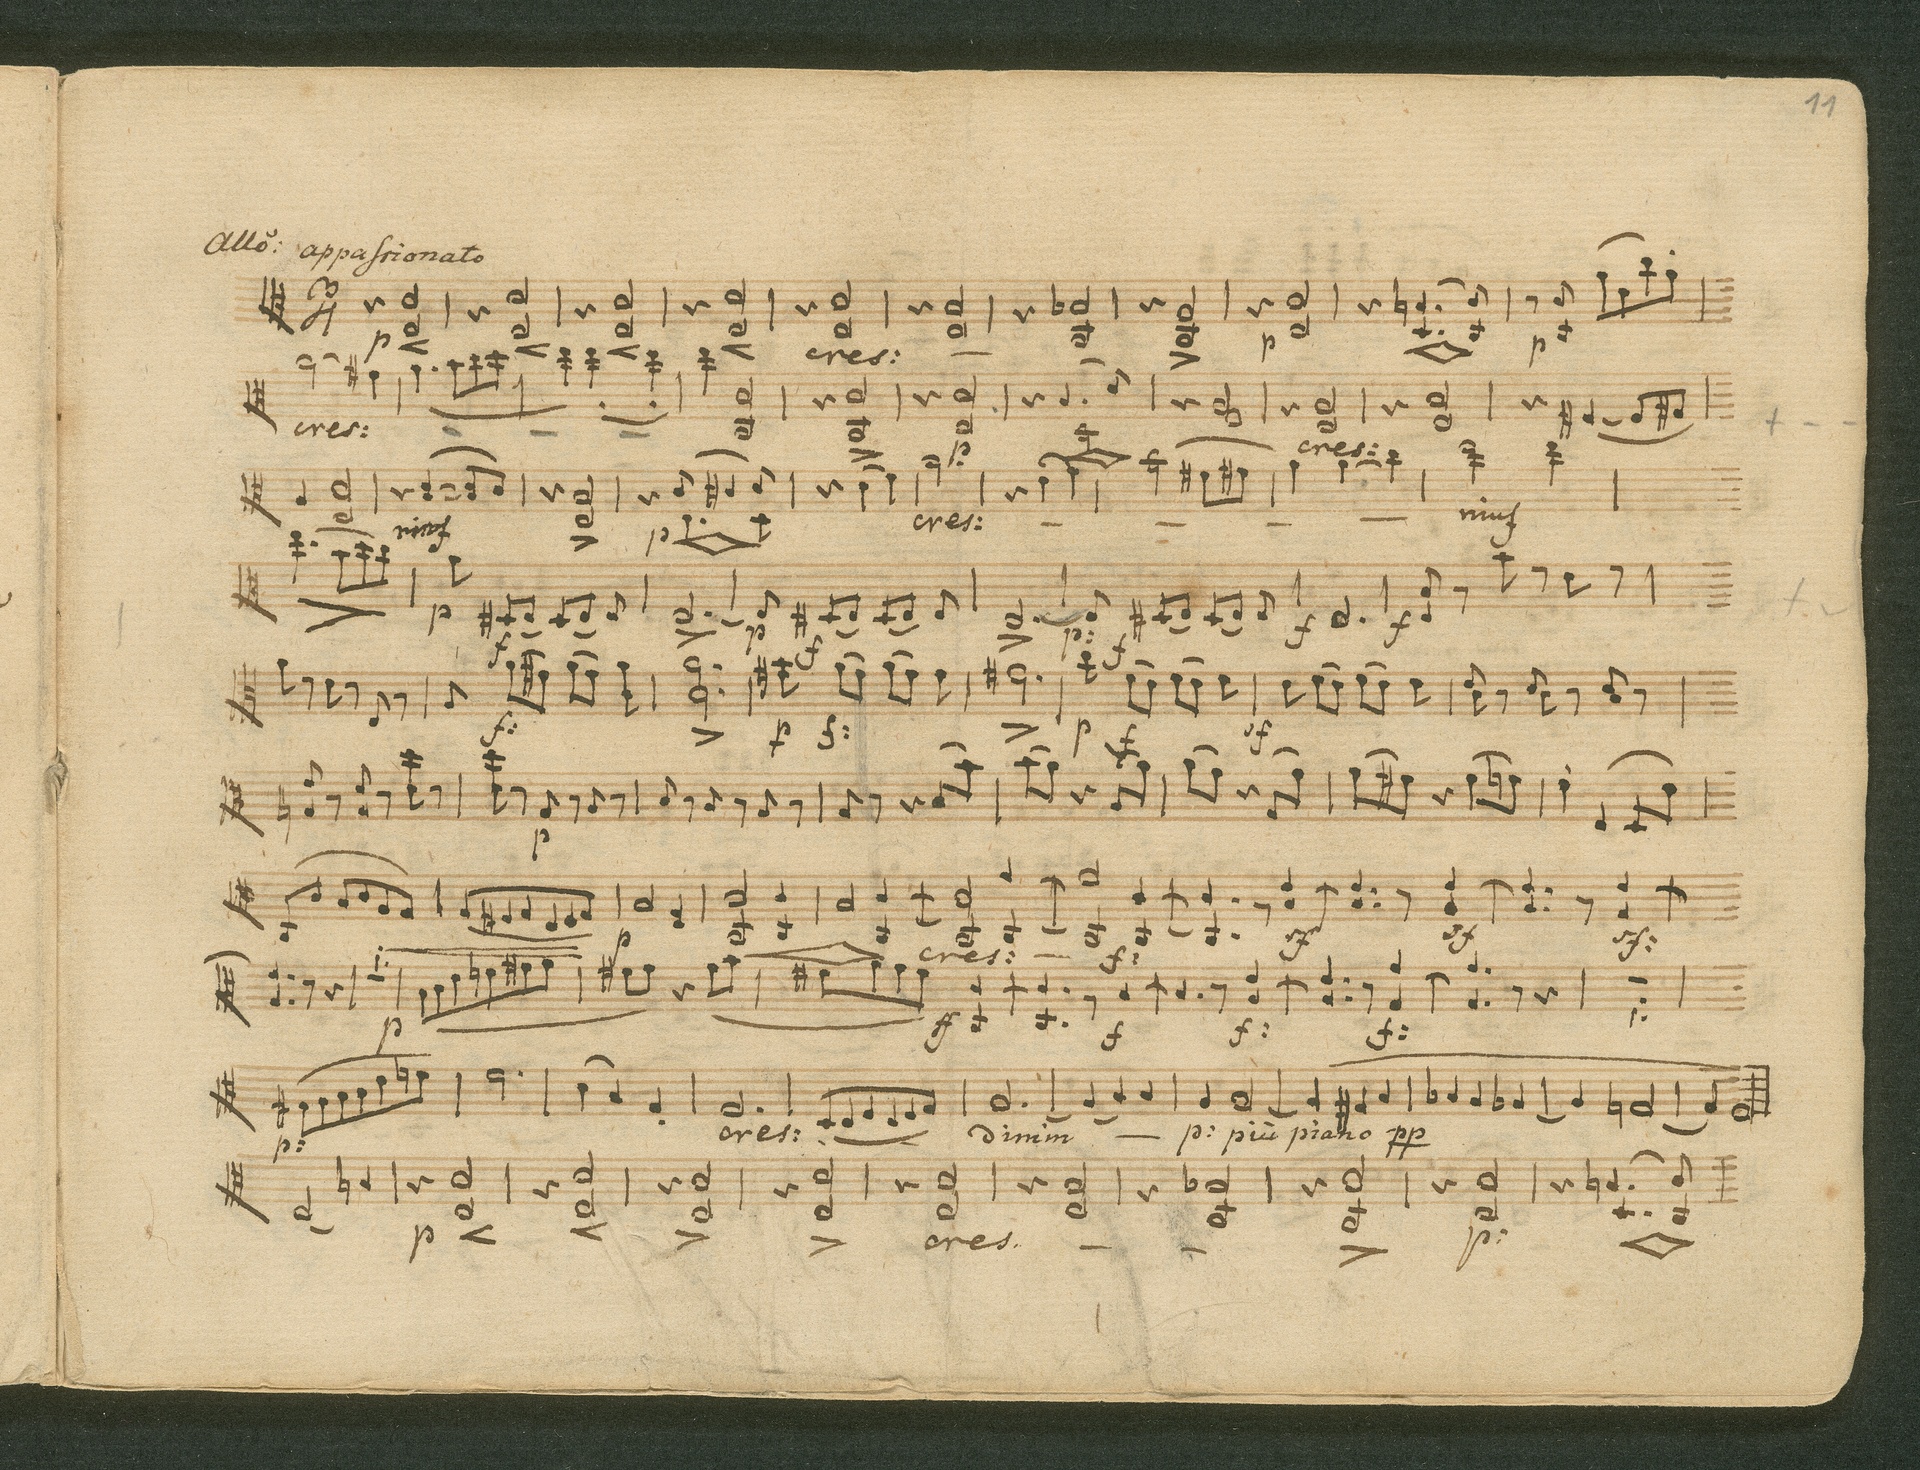 11
Allo: appassionato
3
4
p cres: — p p
cres: — — — p cres:
rinf p cres: — — — — rinf
p f p f p: f f f
f: p f: p f sf
p
p cres: — f: sf sf sf:
p ff f f: f:
p: cres: Dimin — p: più piano pp
p cres. — — p: